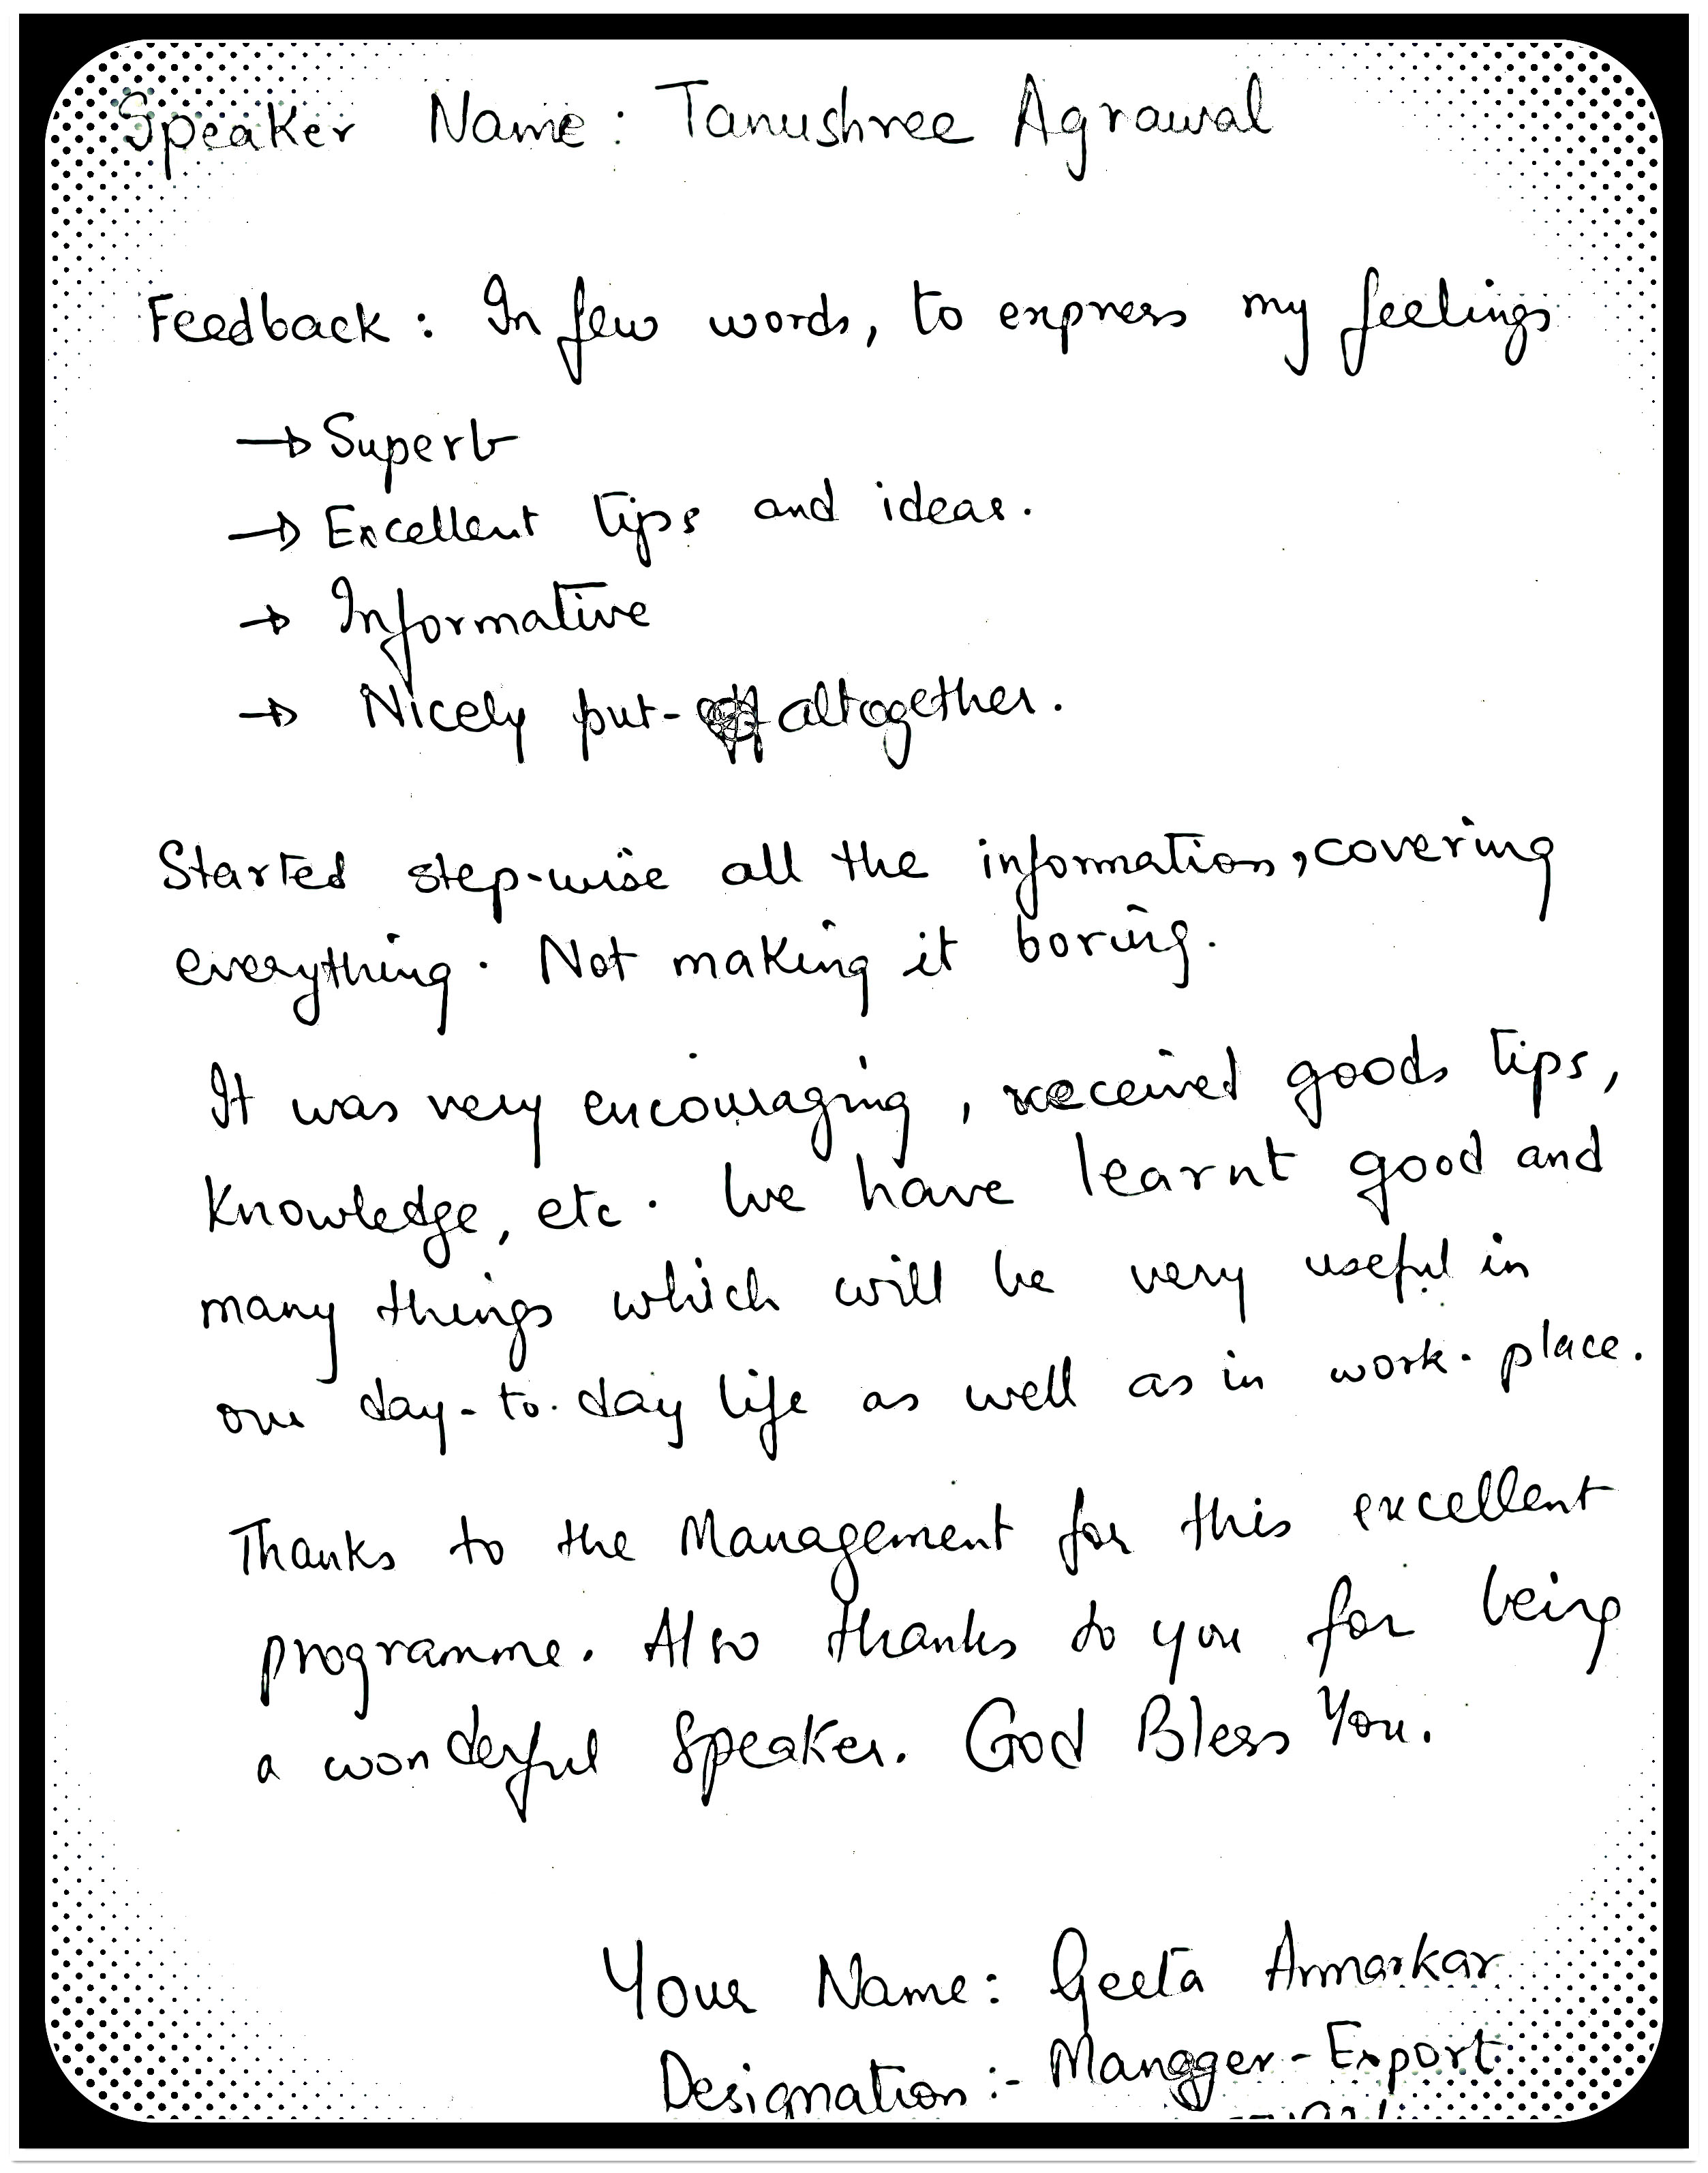 Speaker Name: Tanushree Agrawal
Feedback: In few words, to express my feelings
→ Superb
→ Excellent tips and ideas.
→ Informative
→ Nicely put- altogether.
Started step-wise all the information, covering
everything. Not making it boring.
It was very encouraging, received goods tips,
Knowledge, etc. We have learnt good and
many things which will be very useful in
our day-to-day life as well as in work-place.
Thanks to the Management for this excellent
programme. Also thanks to you for being
a wonderful speaker. God Bless You.
Your Name: Geeta Armarkar
Designation:- Manager-Export